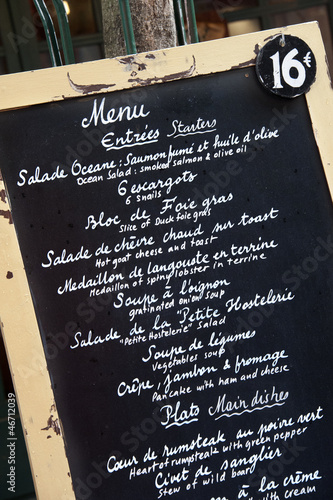 16€
Menu
Entrées Starters
Salade Oceane : Saumon fumé et huile d'olive
Ocean Salad : smoked salmon & olive oil
6 escargots
6 Snails
Bloc de Foie gras
Slice of Duck foie gras
Salade de chèvre chaud sur toast
Hot goat cheese and toast
Medaillon de langouste en terrine
Medaillon of spiny lobster in terrine
Soupe à l'oignon
gratinated onion soup
Salade de la "Petite Hostelerie"
"Petite Hostelerie" Salad
Soupe de légumes
Vegetables soup
Crêpe, jambon & fromage
Pancake with ham and cheese
Plats Main dishes
Cœur de rumsteak au poivre vert
Heart of rumpsteak with green pepper
Civet de sanglier
Stew of wild boar
à la crème
with cream
Adobe Stock
#46712039